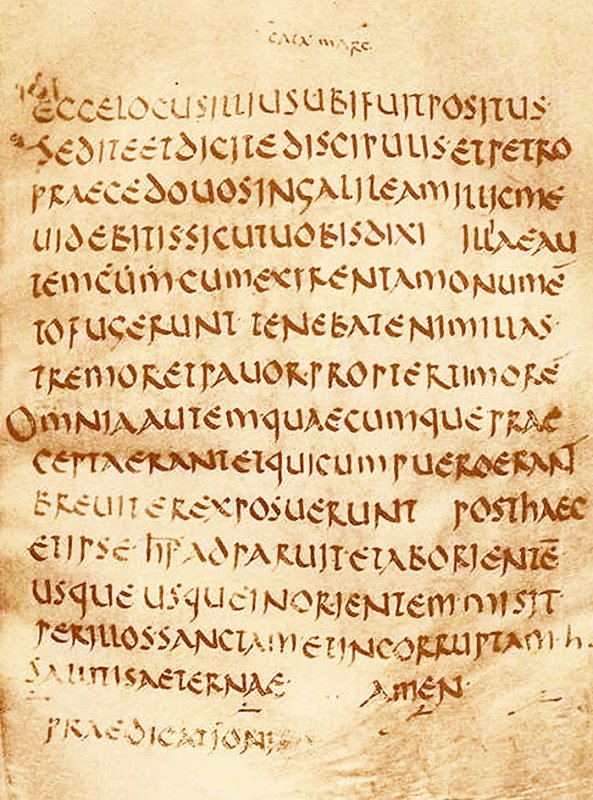 ECCELOCUSILLIUSUBIFUITPOSITUS·
SEDITEETDICITEDISCIPULIS·ETPETRO
PRAECEDOUOSINGALILEAMILLICME
UIDEBITISSICUTUOBISDIXI ILLAEAU
TEMCŪM·CUMEXIRENTAMONUMĒ
TOFUGERUNT TENEBATENIMILLAS·
TREMORETPAUOR·PROPTERTIMORĒ
OMNIAAUTEMQUAECUMQUEPRAE
CEPTAERANTETQUICUMPUEROERANT
BREUITEREXPOSUERUNT POSTHAEC
ETIPSE·ADPARUIT·ETABORIENTĒ
USQUE USQUEINORIENTEM·MISIT
PERILLOSSANCTAMETINCORRUPTAM·H·
SALUTISAETERNAE· AMEN·
PRAEDICATIONIS